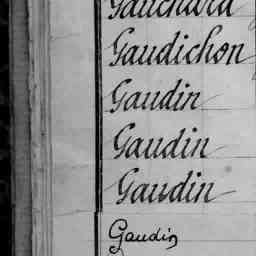 Gauchard
Gaudichon
Gaudin
Gaudin
Gaudin
Gaudin